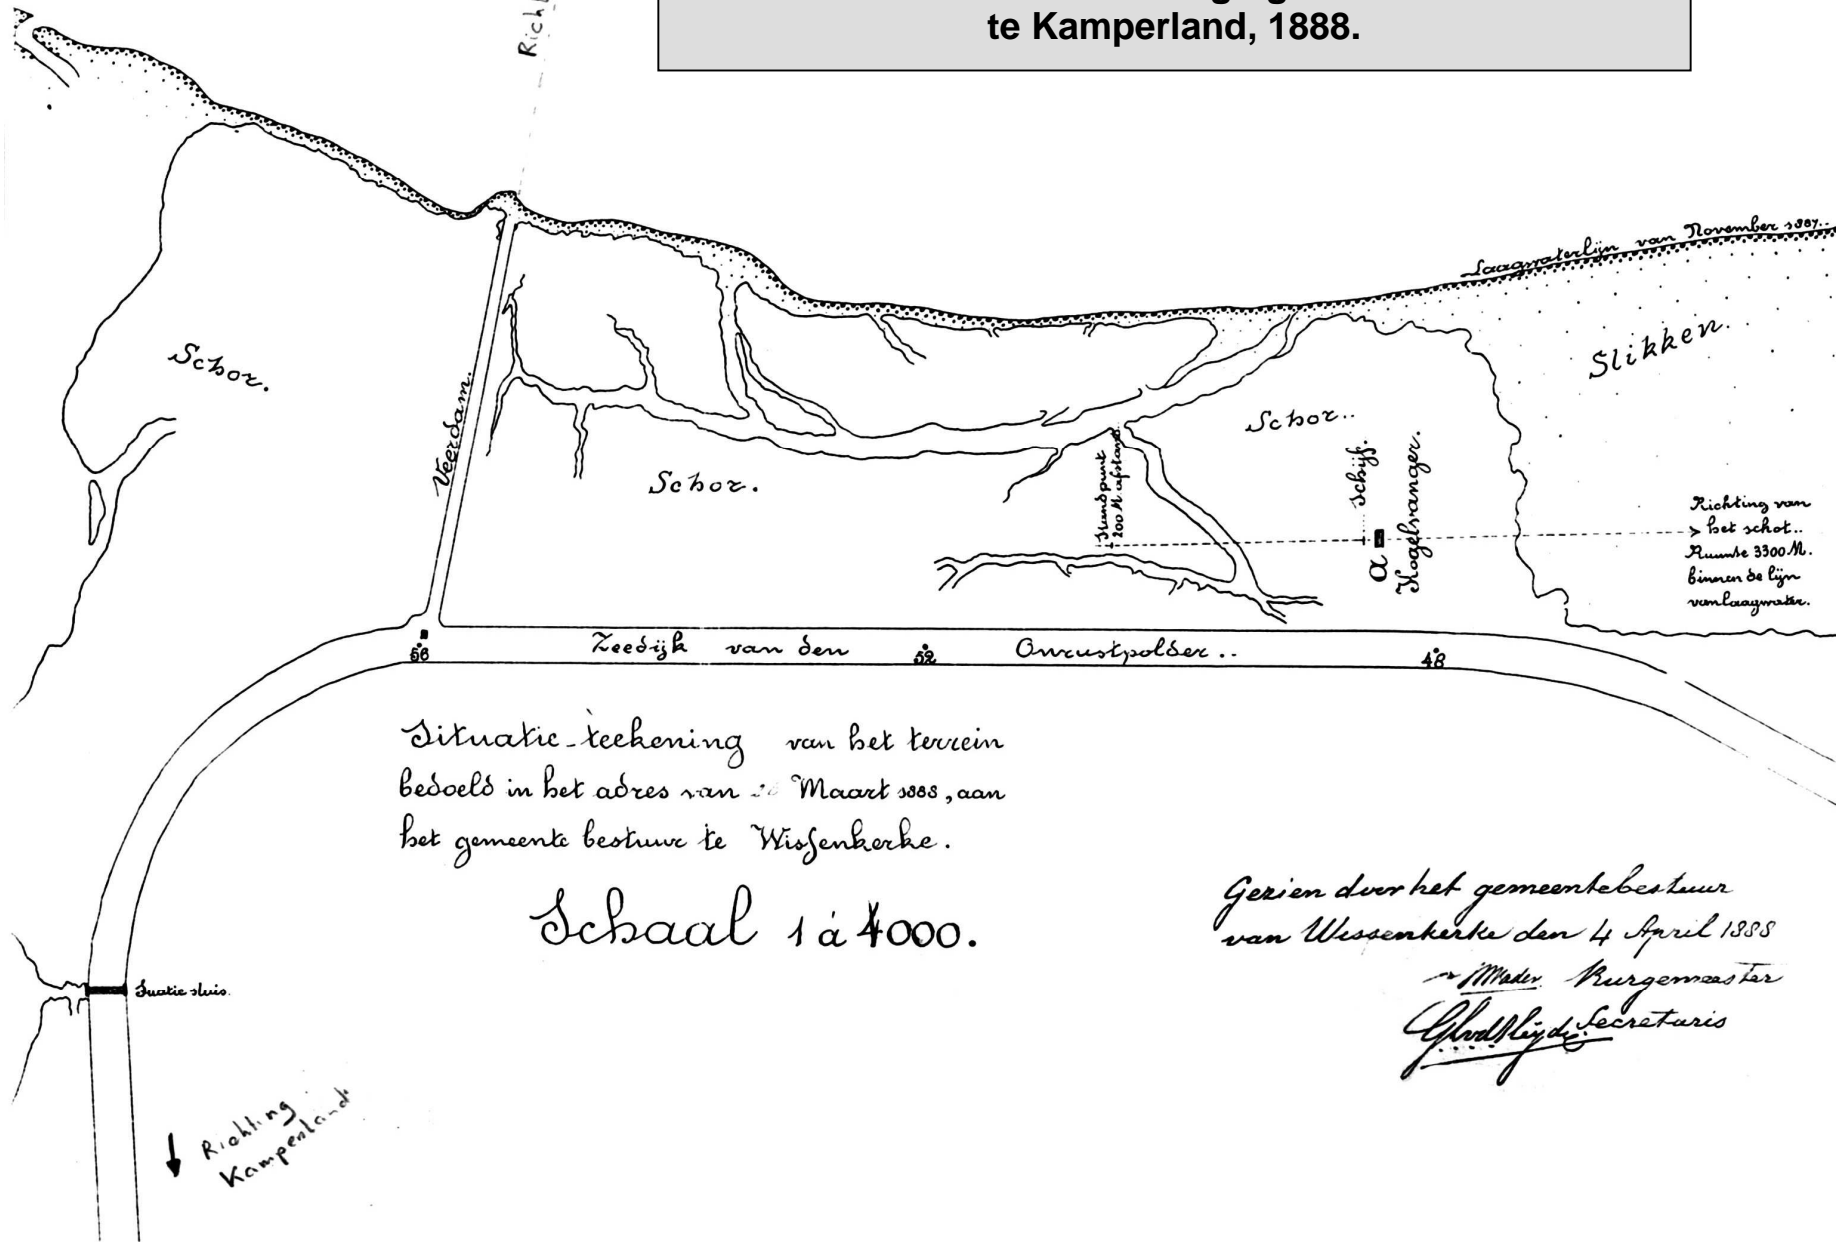 te Kamperland, 1888.
Laagwaterlijn van November 1887..
Schor.
Veerdam.
Schor.
Schor..
Slikken.
Standpunt
200 M. afstand.
Schijf.
a
Kogelvanger.
Richting van
het schot..
Ruimte 3300 M.
binnen de lijn
van laagwater.
56
Zeedijk van den
52
Onrustpolder..
48
Situatie-teekening van het terrein
bedoeld in het adres van Maart 1888, aan
het gemeente bestuur te Wissenkerke.
Schaal 1 à 4000.
Gezien door het gemeentebestuur
van Wissenkerke den 4 April 1888
Burgemeester
Secretaris
Suatie sluis.
Richting
Kamperland